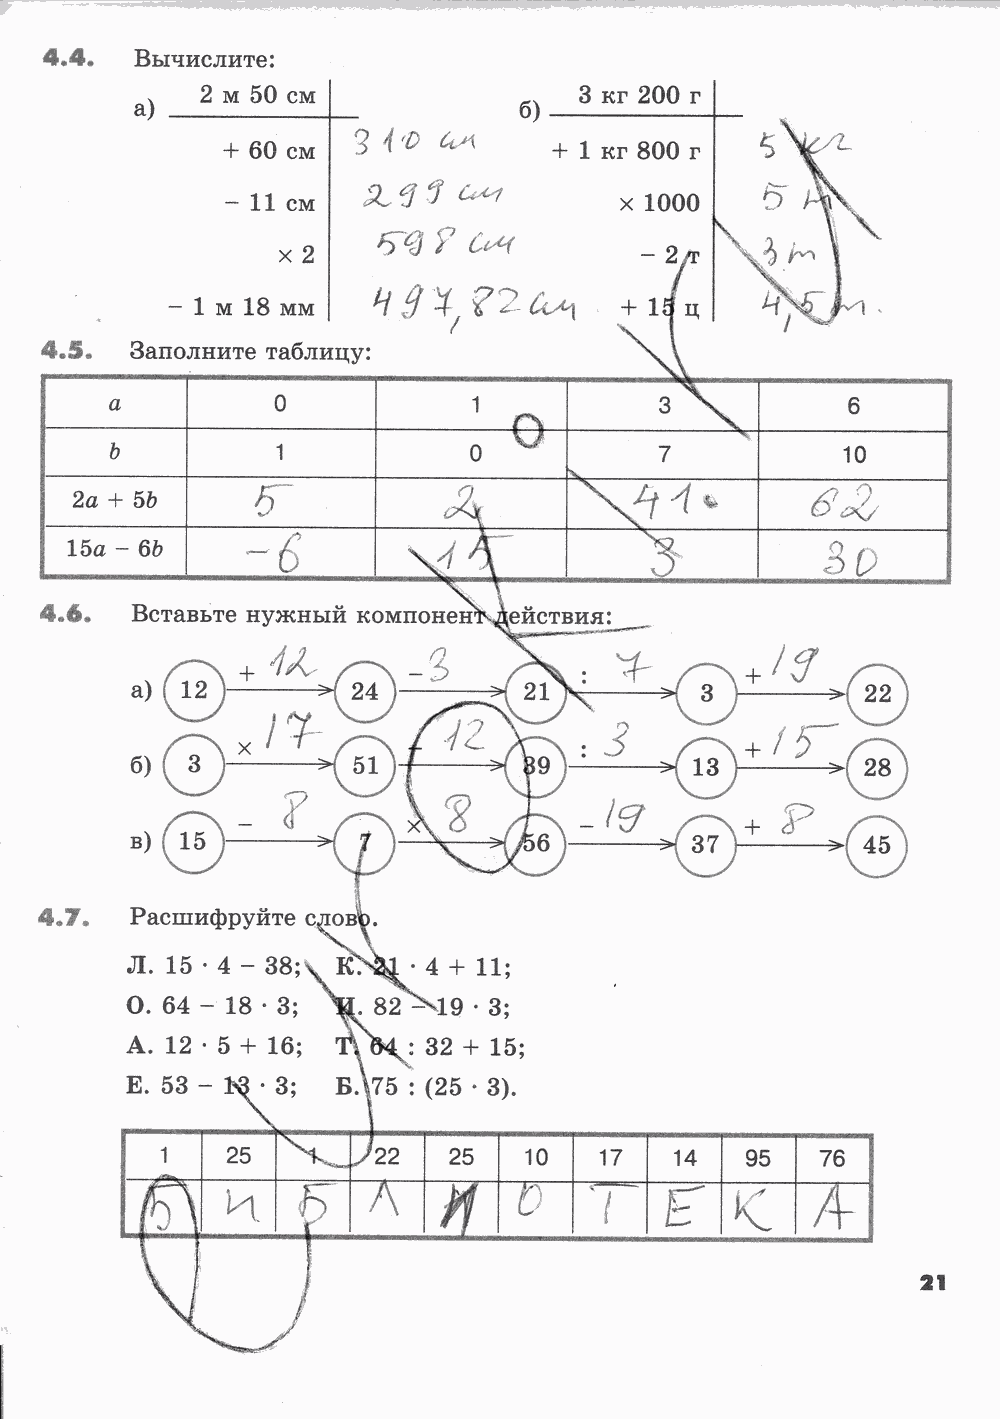 4.4. Вычислите:
а) 2 м 50 см
+ 60 см 310 см
− 11 см 299 см
× 2 598 см
− 1 м 18 мм 497,82 см
б) 3 кг 200 г
+ 1 кг 800 г 5 кг
× 1000 5 т
− 2 т 3 т
+ 15 ц 4,5 т.
4.5. Заполните таблицу:
a 0 1 3 6
b 1 0 7 10
2a + 5b 5 2 41 62
15a − 6b −6 15 3 30
4.6. Вставьте нужный компонент действия:
а) 12 + 12 24 − 3 21 : 7 3 + 19 22
б) 3 × 17 51 − 12 39 : 3 13 + 15 28
в) 15 − 8 7 × 8 56 − 19 37 + 8 45
4.7. Расшифруйте слово.
Л. 15 · 4 − 38; К. 21 · 4 + 11;
О. 64 − 18 · 3; И. 82 − 19 · 3;
А. 12 · 5 + 16; Т. 64 : 32 + 15;
Е. 53 − 13 · 3; Б. 75 : (25 · 3).
1 25 1 22 25 10 17 14 95 76
Б И Б Л И О Т Е К А
21